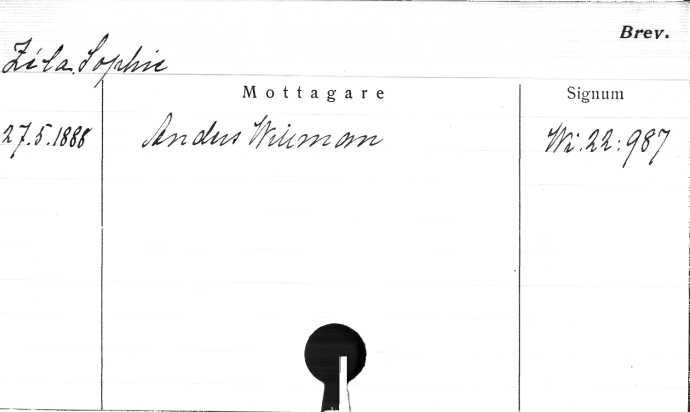 Brev.
Zéla, Sophie
Mottagare Signum
27.5.1888 Anders Willman Wi.22:987